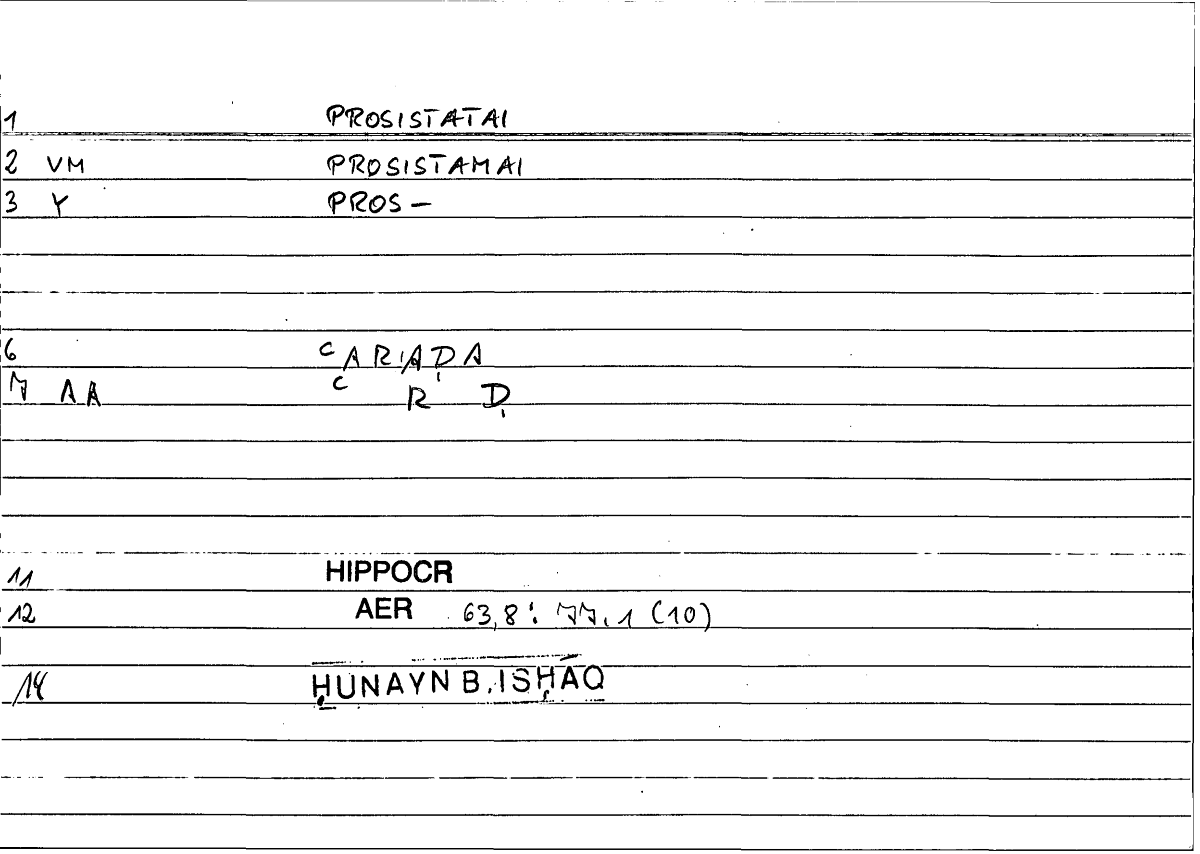 1 PROSISTATAI
2 VM PROSISTAMAI
3 Y PROS—
6 ʿARAḌA
7 AA ʿ R Ḍ
11 HIPPOCR
12 AER 63,8: 77.1 (10)
14 ḤUNAYN B. ISḤĀQ